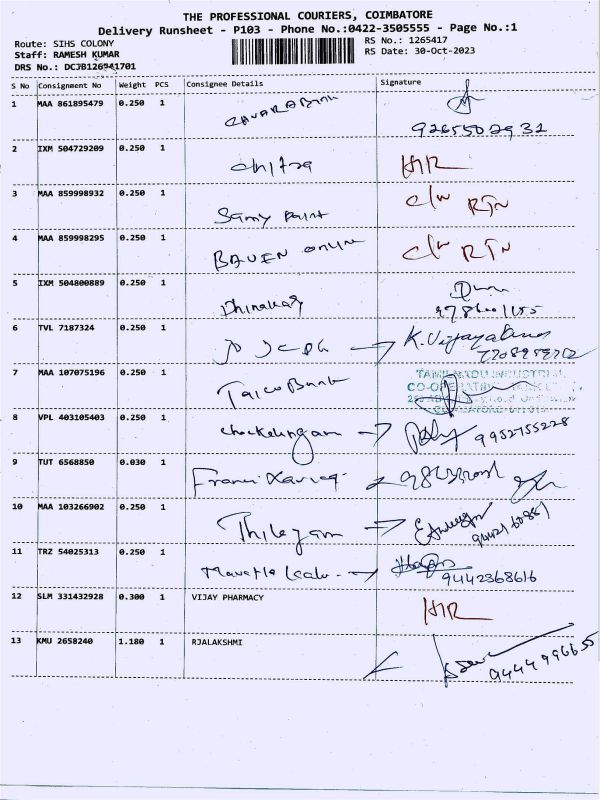 THE PROFESSIONAL COURIERS, COIMBATORE
Delivery Runsheet - P103 - Phone No.:0422-3505555 - Page No.:1
Route: SIHS COLONY RS No.: 1265417
Staff: RAMESH KUMAR RS Date: 30-Oct-2023
DRS No.: DCJB126941701
S No Consignment No Weight PCS Consignee Details Signature
1 MAA 861895479 0.250 1
9265502932
2 IXM 504729209 0.250 1 chitra H/R
3 MAA 859998932 0.250 1 Samy Paint c/n RTN
4 MAA 859998295 0.250 1 c/n RTN
5 IXM 504800889 0.250 1 Dhinakar
6 TVL 7187324 0.250 1 K. Vijayabanu
7 MAA 107075196 0.250 1 Taico Bank TAMIL NADU INDUSTRIAL
CO-OPERATIVE BANK LTD
8 VPL 403105403 0.250 1 chockalingam 9952755228
9 TUT 6568850 0.030 1 Francis Xavier
10 MAA 103266902 0.250 1 Thilagam
11 TRZ 54025313 0.250 1 9442368616
12 SLM 331432928 0.300 1 VIJAY PHARMACY H/R
13 KMU 2658240 1.180 1 RJALAKSHMI
9444996655